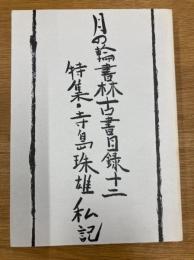 月の輪書林古書目録十二
特集・寺島珠雄私記